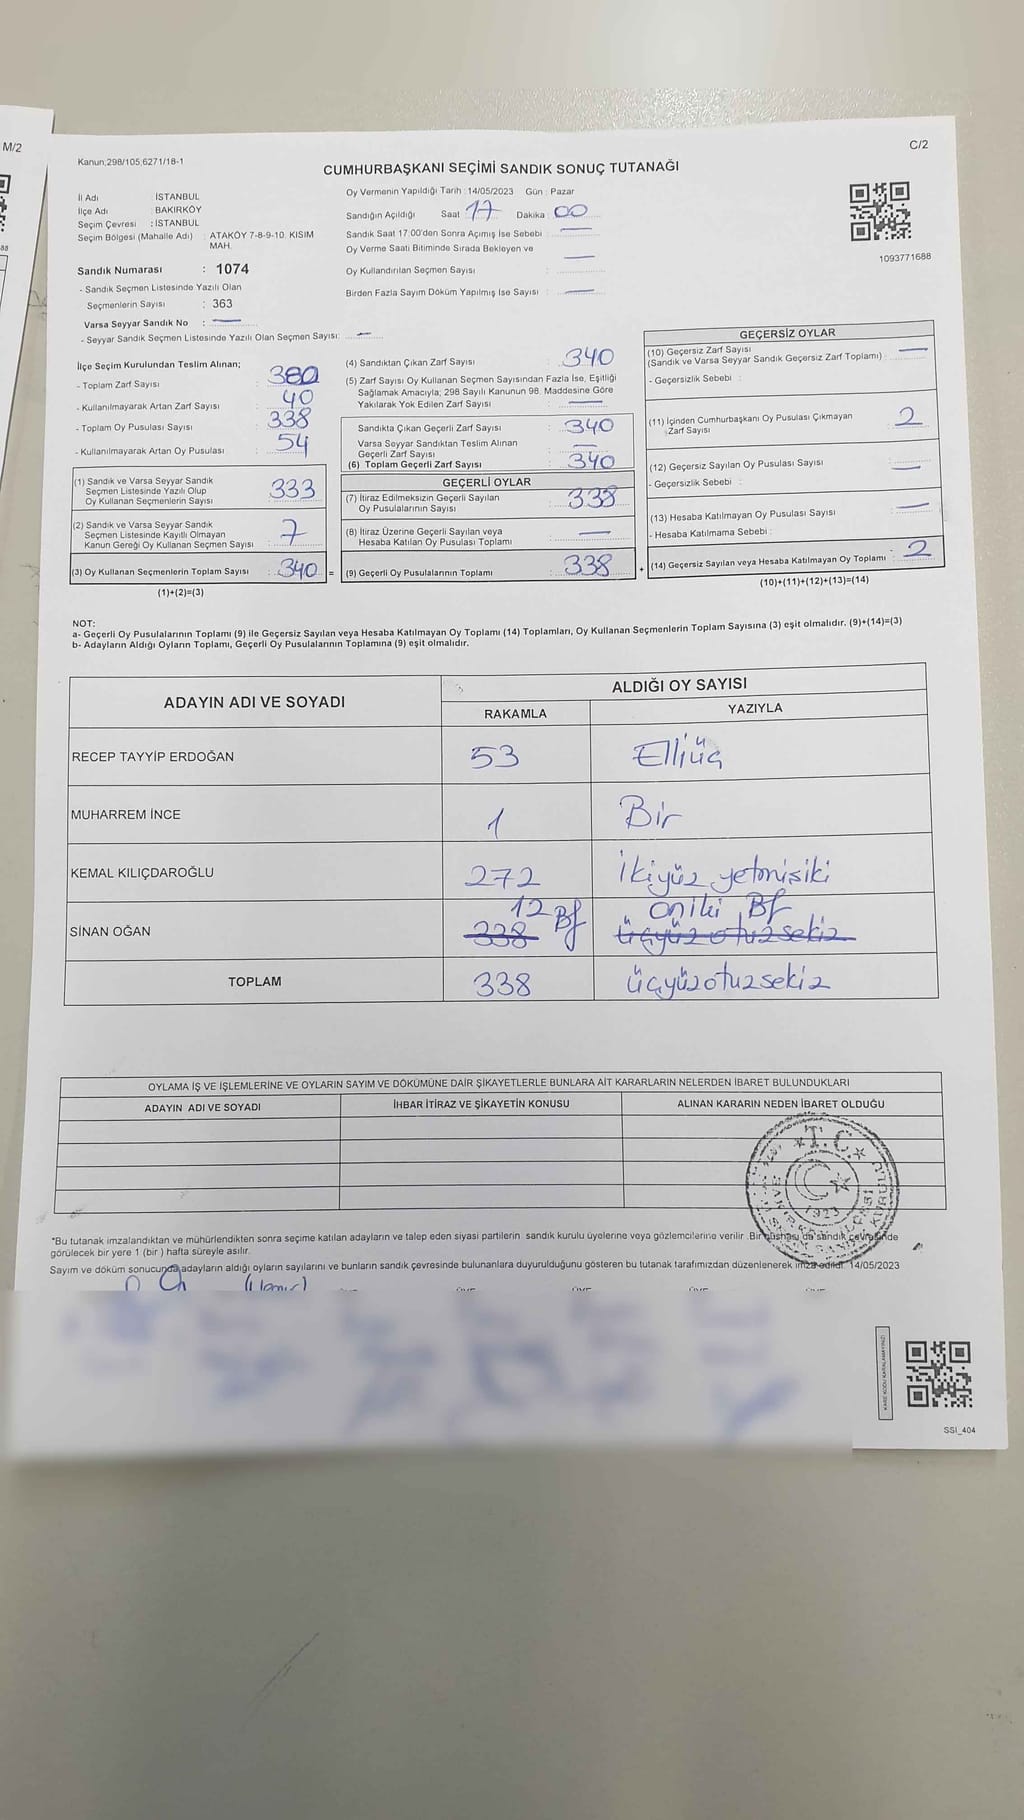 M/2
88
Kanun;298/105,6271/18-1
C/2
CUMHURBAŞKANI SEÇİMİ SANDIK SONUÇ TUTANAĞI
İl Adı : İSTANBUL
İlçe Adı : BAKIRKÖY
Seçim Çevresi : İSTANBUL
Seçim Bölgesi (Mahalle Adı) : ATAKÖY 7-8-9-10. KISIM MAH.
Sandık Numarası : 1074
- Sandık Seçmen Listesinde Yazılı Olan
Seçmenlerin Sayısı : 363
Varsa Seyyar Sandık No : —
- Seyyar Sandık Seçmen Listesinde Yazılı Olan Seçmen Sayısı: —
Oy Vermenin Yapıldığı Tarih : 14/05/2023 Gün : Pazar
Sandığın Açıldığı Saat 17 Dakika : 00
Sandık Saat 17:00'den Sonra Açımış İse Sebebi : —
Oy Verme Saati Bitiminde Sırada Bekleyen ve —
Oy Kullandırılan Seçmen Sayısı :
Birden Fazla Sayım Döküm Yapılmış İse Sayısı : —
1093771688
İlçe Seçim Kurulundan Teslim Alınan;
- Toplam Zarf Sayısı : 380
- Kullanılmayarak Artan Zarf Sayısı : 40
- Toplam Oy Pusulası Sayısı : 338
- Kullanılmayarak Artan Oy Pusulası : 54
(1) Sandık ve Varsa Seyyar Sandık
Seçmen Listesinde Yazılı Olup
Oy Kullanan Seçmenlerin Sayısı : 333
(2) Sandık ve Varsa Seyyar Sandık
Seçmen Listesinde Kayıtlı Olmayan
Kanun Gereği Oy Kullanan Seçmen Sayısı : 7
(3) Oy Kullanan Seçmenlerin Toplam Sayısı : 340 =
(1)+(2)=(3)
(4) Sandıktan Çıkan Zarf Sayısı : 340
(5) Zarf Sayısı Oy Kullanan Seçmen Sayısından Fazla İse, Eşitliği
Sağlamak Amacıyla; 298 Sayılı Kanunun 98. Maddesine Göre
Yakılarak Yok Edilen Zarf Sayısı : —
Sandıkta Çıkan Geçerli Zarf Sayısı : 340
Varsa Seyyar Sandıktan Teslim Alınan
Geçerli Zarf Sayısı : —
(6) Toplam Geçerli Zarf Sayısı : 340
GEÇERLİ OYLAR
(7) İtiraz Edilmeksizin Geçerli Sayılan
Oy Pusulalarının Sayısı : 338
(8) İtiraz Üzerine Geçerli Sayılan veya
Hesaba Katılan Oy Pusulası Toplamı : —
(9) Geçerli Oy Pusulalarının Toplamı : 338 +
GEÇERSİZ OYLAR
(10) Geçersiz Zarf Sayısı
(Sandık ve Varsa Seyyar Sandık Geçersiz Zarf Toplamı) : —
- Geçersizlik Sebebi :
(11) İçinden Cumhurbaşkanı Oy Pusulası Çıkmayan
Zarf Sayısı : 2
(12) Geçersiz Sayılan Oy Pusulası Sayısı : —
- Geçersizlik Sebebi :
(13) Hesaba Katılmayan Oy Pusulası Sayısı : —
- Hesaba Katılmama Sebebi :
(14) Geçersiz Sayılan veya Hesaba Katılmayan Oy Toplamı : 2
(10)+(11)+(12)+(13)=(14)
NOT:
a- Geçerli Oy Pusulalarının Toplamı (9) ile Geçersiz Sayılan veya Hesaba Katılmayan Oy Toplamı (14) Toplamları, Oy Kullanan Seçmenlerin Toplam Sayısına (3) eşit olmalıdır. (9)+(14)=(3)
b- Adayların Aldığı Oyların Toplamı, Geçerli Oy Pusulalarının Toplamına (9) eşit olmalıdır.
ADAYIN ADI VE SOYADI
ALDIĞI OY SAYISI
RAKAMLA YAZIYLA
RECEP TAYYİP ERDOĞAN 53 Elliüç
MUHARREM İNCE 1 Bir
KEMAL KILIÇDAROĞLU 272 İkiyüz yetmişiki
12 Bf oniki Bf
SİNAN OĞAN 338 üçyüzotuzsekiz
TOPLAM 338 üçyüzotuzsekiz
OYLAMA İŞ VE İŞLEMLERİNE VE OYLARIN SAYIM VE DÖKÜMÜNE DAİR ŞİKAYETLERLE BUNLARA AİT KARARLARIN NELERDEN İBARET BULUNDUKLARI
ADAYIN ADI VE SOYADI İHBAR İTİRAZ VE ŞİKAYETİN KONUSU ALINAN KARARIN NEDEN İBARET OLDUĞU
T.C.
1923
*Bu tutanak imzalandıktan ve mühürlendikten sonra seçime katılan adayların ve talep eden siyasi partilerin sandık kurulu üyelerine veya gözlemcilerine verilir. Bir nüshası da sandık çevresinde
görülecek bir yere 1 (bir ) hafta süreyle asılır.
Sayım ve döküm sonucunda adayların aldığı oyların sayılarını ve bunların sandık çevresinde bulunanlara duyurulduğunu gösteren bu tutanak tarafımızdan düzenlenerek imza edildi. 14/05/2023
KARE KODU KARALAMAYINIZ!
SSI_404